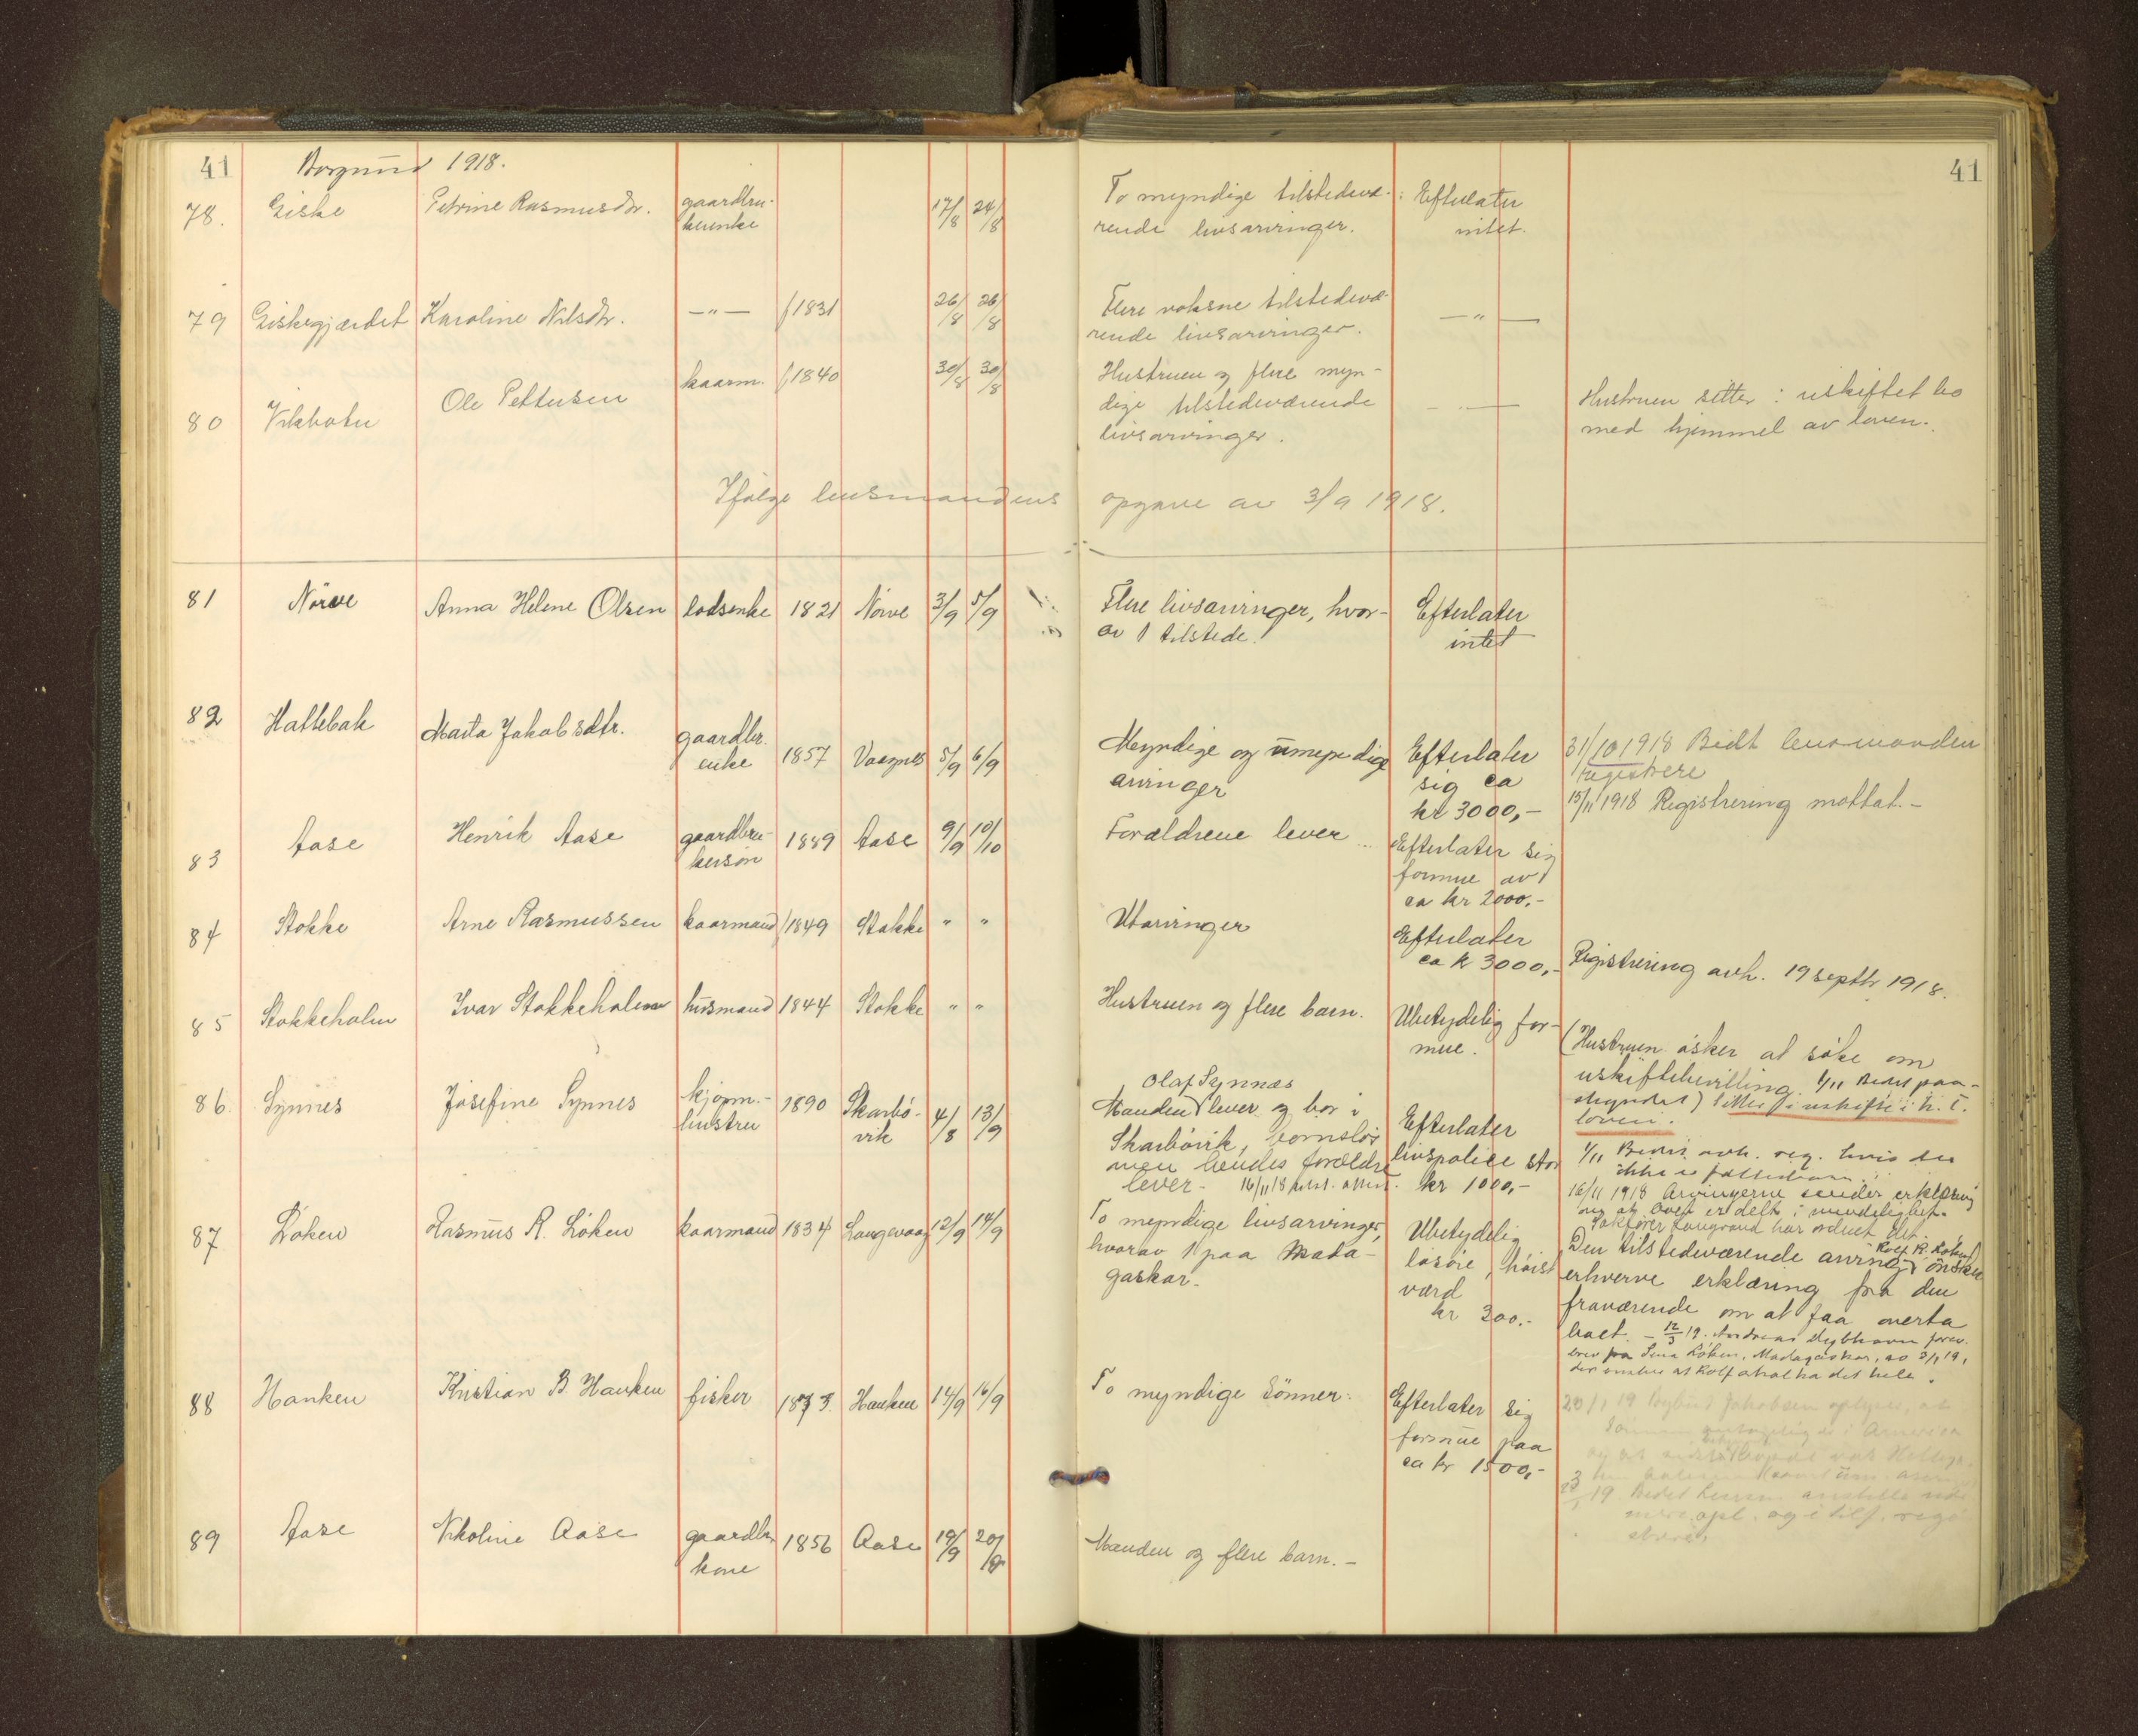 41 Borgund 1918. 41
78. Giske Petrine Rasmusdtr. gaardbru-
kerenke 17/8 24/8 To myndige tilstedevæ-
rende livsarvinger. Efterlater
intet.
79 Giskegjærdet Karoline Nilsdtr. —"— f 1831 26/8 26/8 Flere voksne tilstedevæ-
rende livsarvinger. —"—
80 Vikholm Ole Pettersen kaarm. f 1840 30/8 30/8 Hustruen og flere myn-
dige tilstedeværende
livsarvinger. —"— Hustruen sitter i uskiftet bo
med hjemmel av loven.
Ifølge lensmandens opgave av 3/9 1918.
81 Nörve Anna Helene Olsen lodsenke 1821 Nörve 3/9 5/9 Flere livsarvinger, hvor-
av 1 tilstede. Efterlater
intet
82 Hattebak Marta Jakobsdtr. gaardbr.
enke 1857 Vaagnes 5/9 6/9 Myndige og umyndige
arvinger Efterlater
sig ca
kr 3000,- 31/10 1918 Bedt lensmanden
registrere
15/11 1918 Registrering mottat.-
83 Aase Henrik Aase gaardbru-
kersön 1889 Aase 9/9 10/10 Forældrene lever Efterlater sig
formue av
ca kr 2000.-
84 Stokke Arne Rasmussen kaarmand 1849 Stokke " " Utarvinger Efterlater
ca k 3000,- Registrering avh. 19 septbr 1918.
85 Stokkeholm Ivar Stokkeholm husmand 1844 Stokke " " Hustruen og flere barn. Ubetydelig for-
mue. (Hustruen ösker at söke om
uskiftebevilling. 1/11 Bedt paa-
skyndet) Sitter i uskifte i h. t.
loven.
86. Synnes Josefine Synnes kjöpm.-
hustru 1890 Skarbö-
vik 4/8 13/9 Olaf Synnæs
Manden lever og bor i
Skarbövik, barnslös
men hendes forældre
lever - 16/11 18 Efterlater
livspolice stor
kr 1000,- 1/11 avh. reg. hvis der
ikke er
16/11 1918 Arvingerne sender erklæring
om at boet er delt i mindelighet.
Sakförer har ordnet det.
87 Löken Rasmus R. Löken kaarmand 1834 Langevaag 12/9 14/9 To myndige livsarvinger,
hvorav 1 paa Mada-
gaskar. Ubetydelig
lösöre, höist
værd
kr 300.- Rolf R. Löken
Den tilstedeværende arving önsker
erhverve erklæring fra den
fraværende om at faa overta
boet. - 12/3 19. Andreas forev.
brev fra Löken, Madagaskar, av 3/1 19,
der önsker at Rolf skal ha det hele.
88 Hanken Kristian B. Hanken fisker 1873 Hanken 14/9 16/9 To myndige sönner. Efterlater sig
formue paa
ca kr 1500,- 20/1 19 Jakobsen oplyser at
America
19 Bedet Lensm.
opl. og i tilf. regi-
strere.
89 Aase Nikoline Aase gaardbr.
kone 1856 Aase 19/9 20/9 Manden og flere barn.-